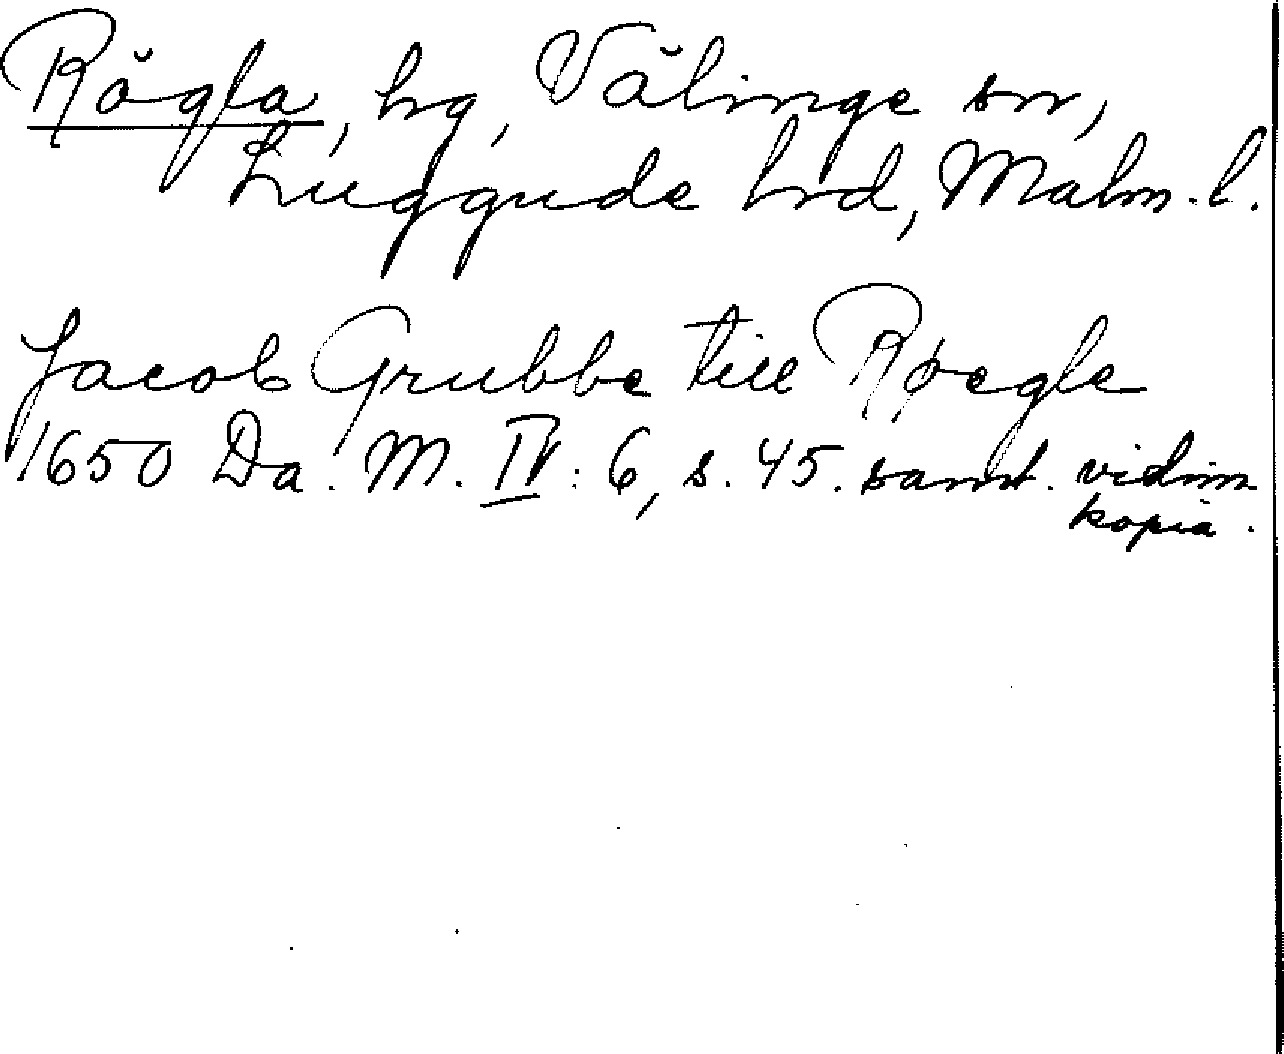 Rögla, hg, Välinge sn,
Luggude hrd, Malm. l.
Jacob Grubbe till Røegle
1650 Da. M. IV: 6, s. 45. samt. vidim.
kopia.